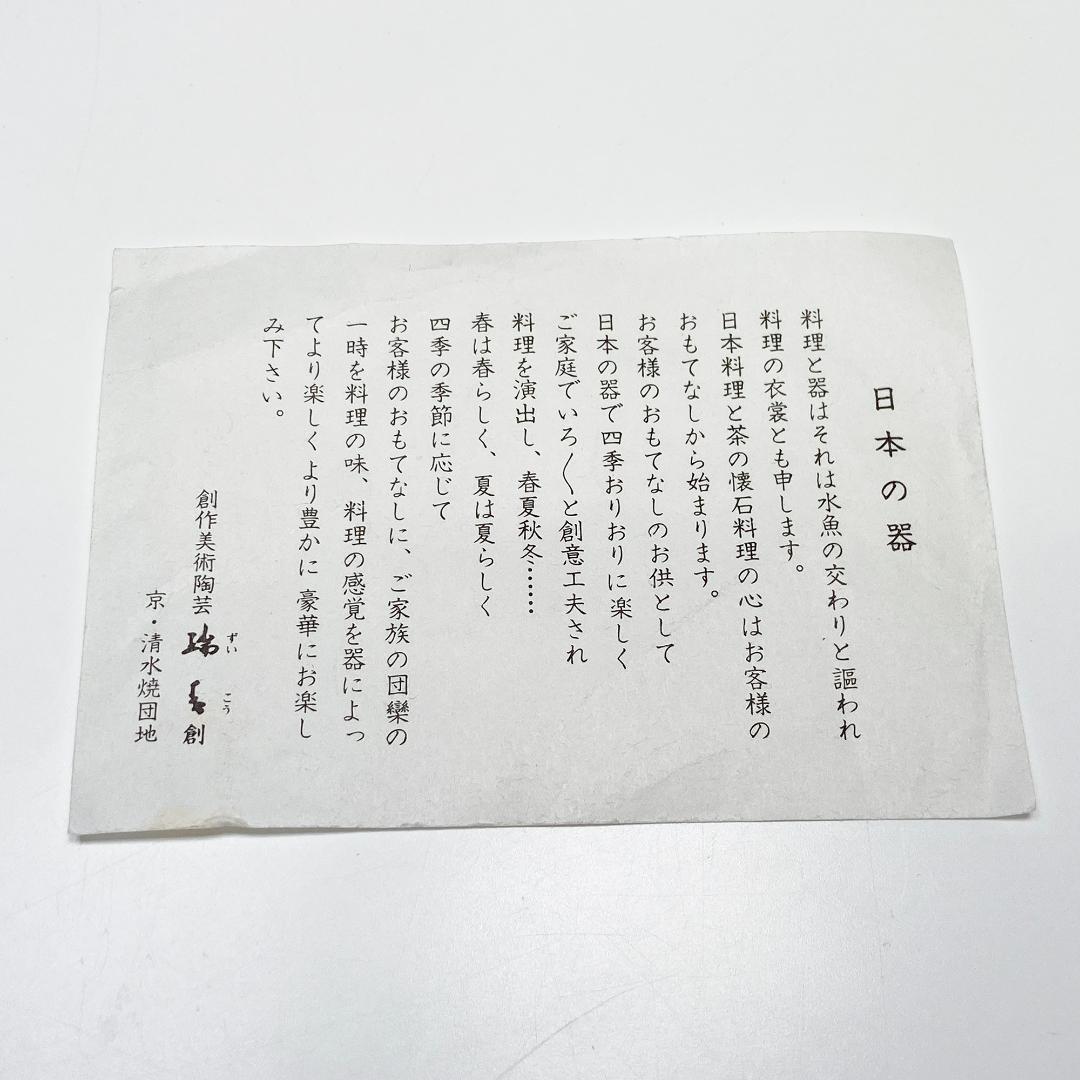 日本の器
料理と器はそれは水魚の交わりと謳われ
料理の衣裳とも申します。
日本料理と茶の懐石料理の心はお客様の
おもてなしから始まります。
お客様のおもてなしのお供として
日本の器で四季おりおりに楽しく
ご家庭でいろ〳〵と創意工夫され
料理を演出し、春夏秋冬……
春は春らしく、夏は夏らしく
四季の季節に応じて
お客様のおもてなしに、ご家族の団欒の
一時を料理の味、料理の感覚を器によっ
てより楽しくより豊かに豪華にお楽し
み下さい。
創作美術陶芸 瑞香創
ずい こう
京・清水焼団地